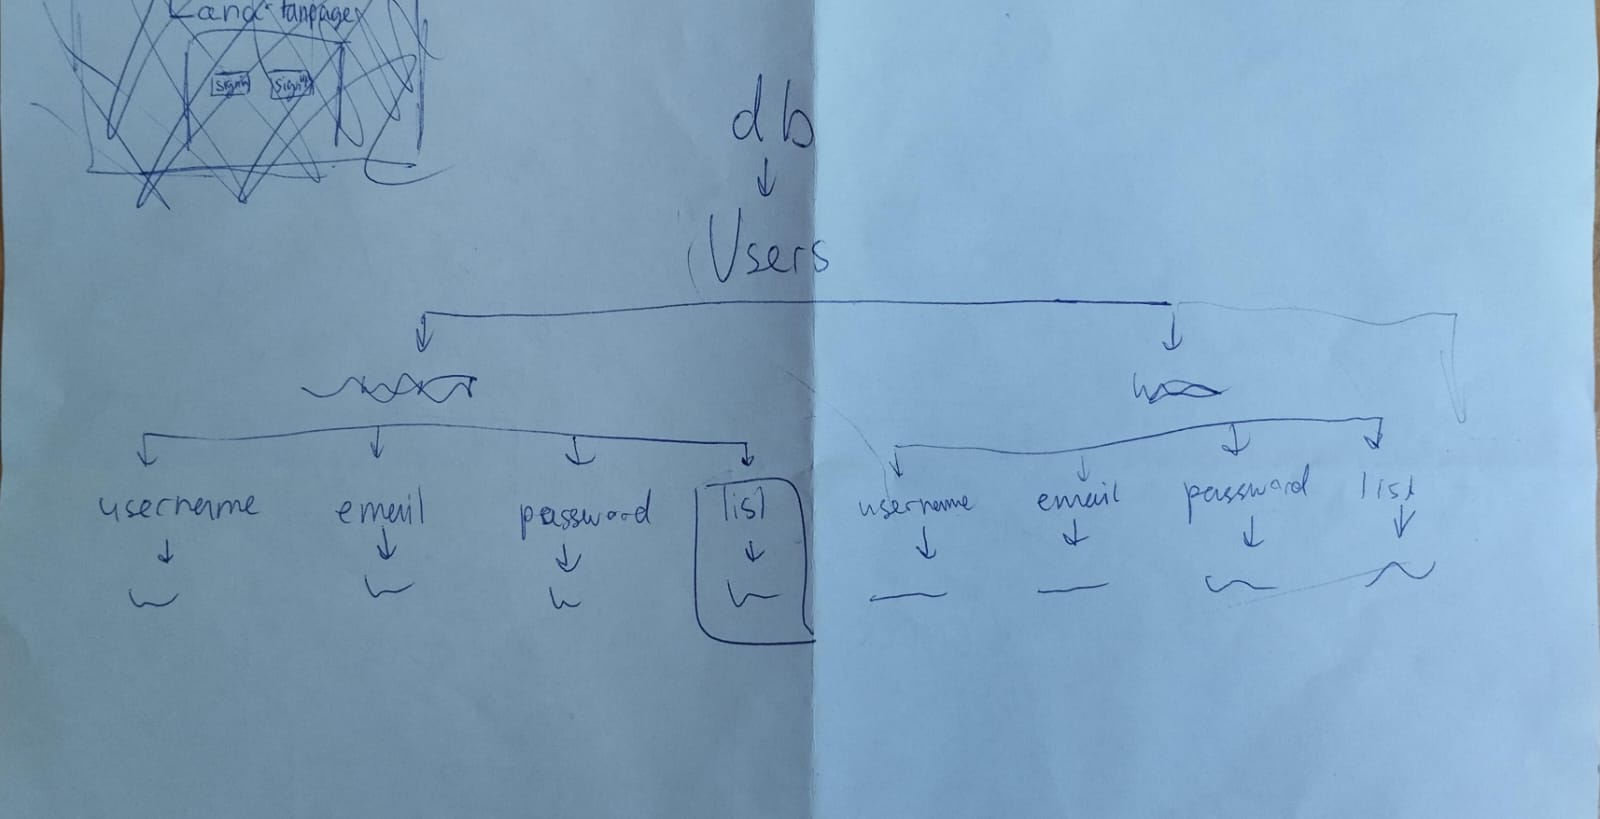 Land
sign in sign up
db
Users
username email password list username email password list